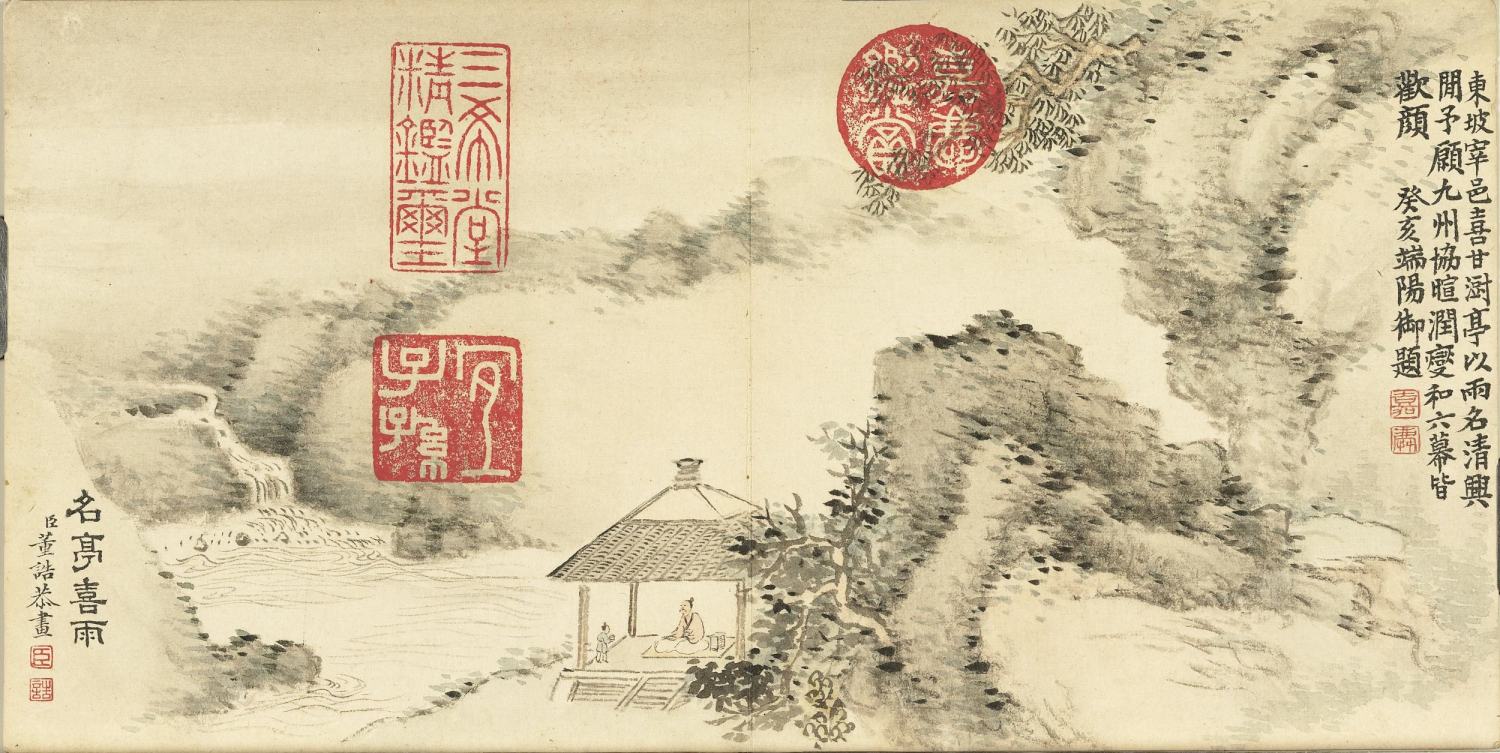 東坡宰邑喜甘澍亭以雨名清興
閒予願九州協暄潤燮和六幕皆
歡顏 癸亥端陽御題
嘉
慶
嘉慶
鑑賞
三希堂
精鑑璽
宜
子孫
名亭喜雨
臣董誥恭畫
臣
誥